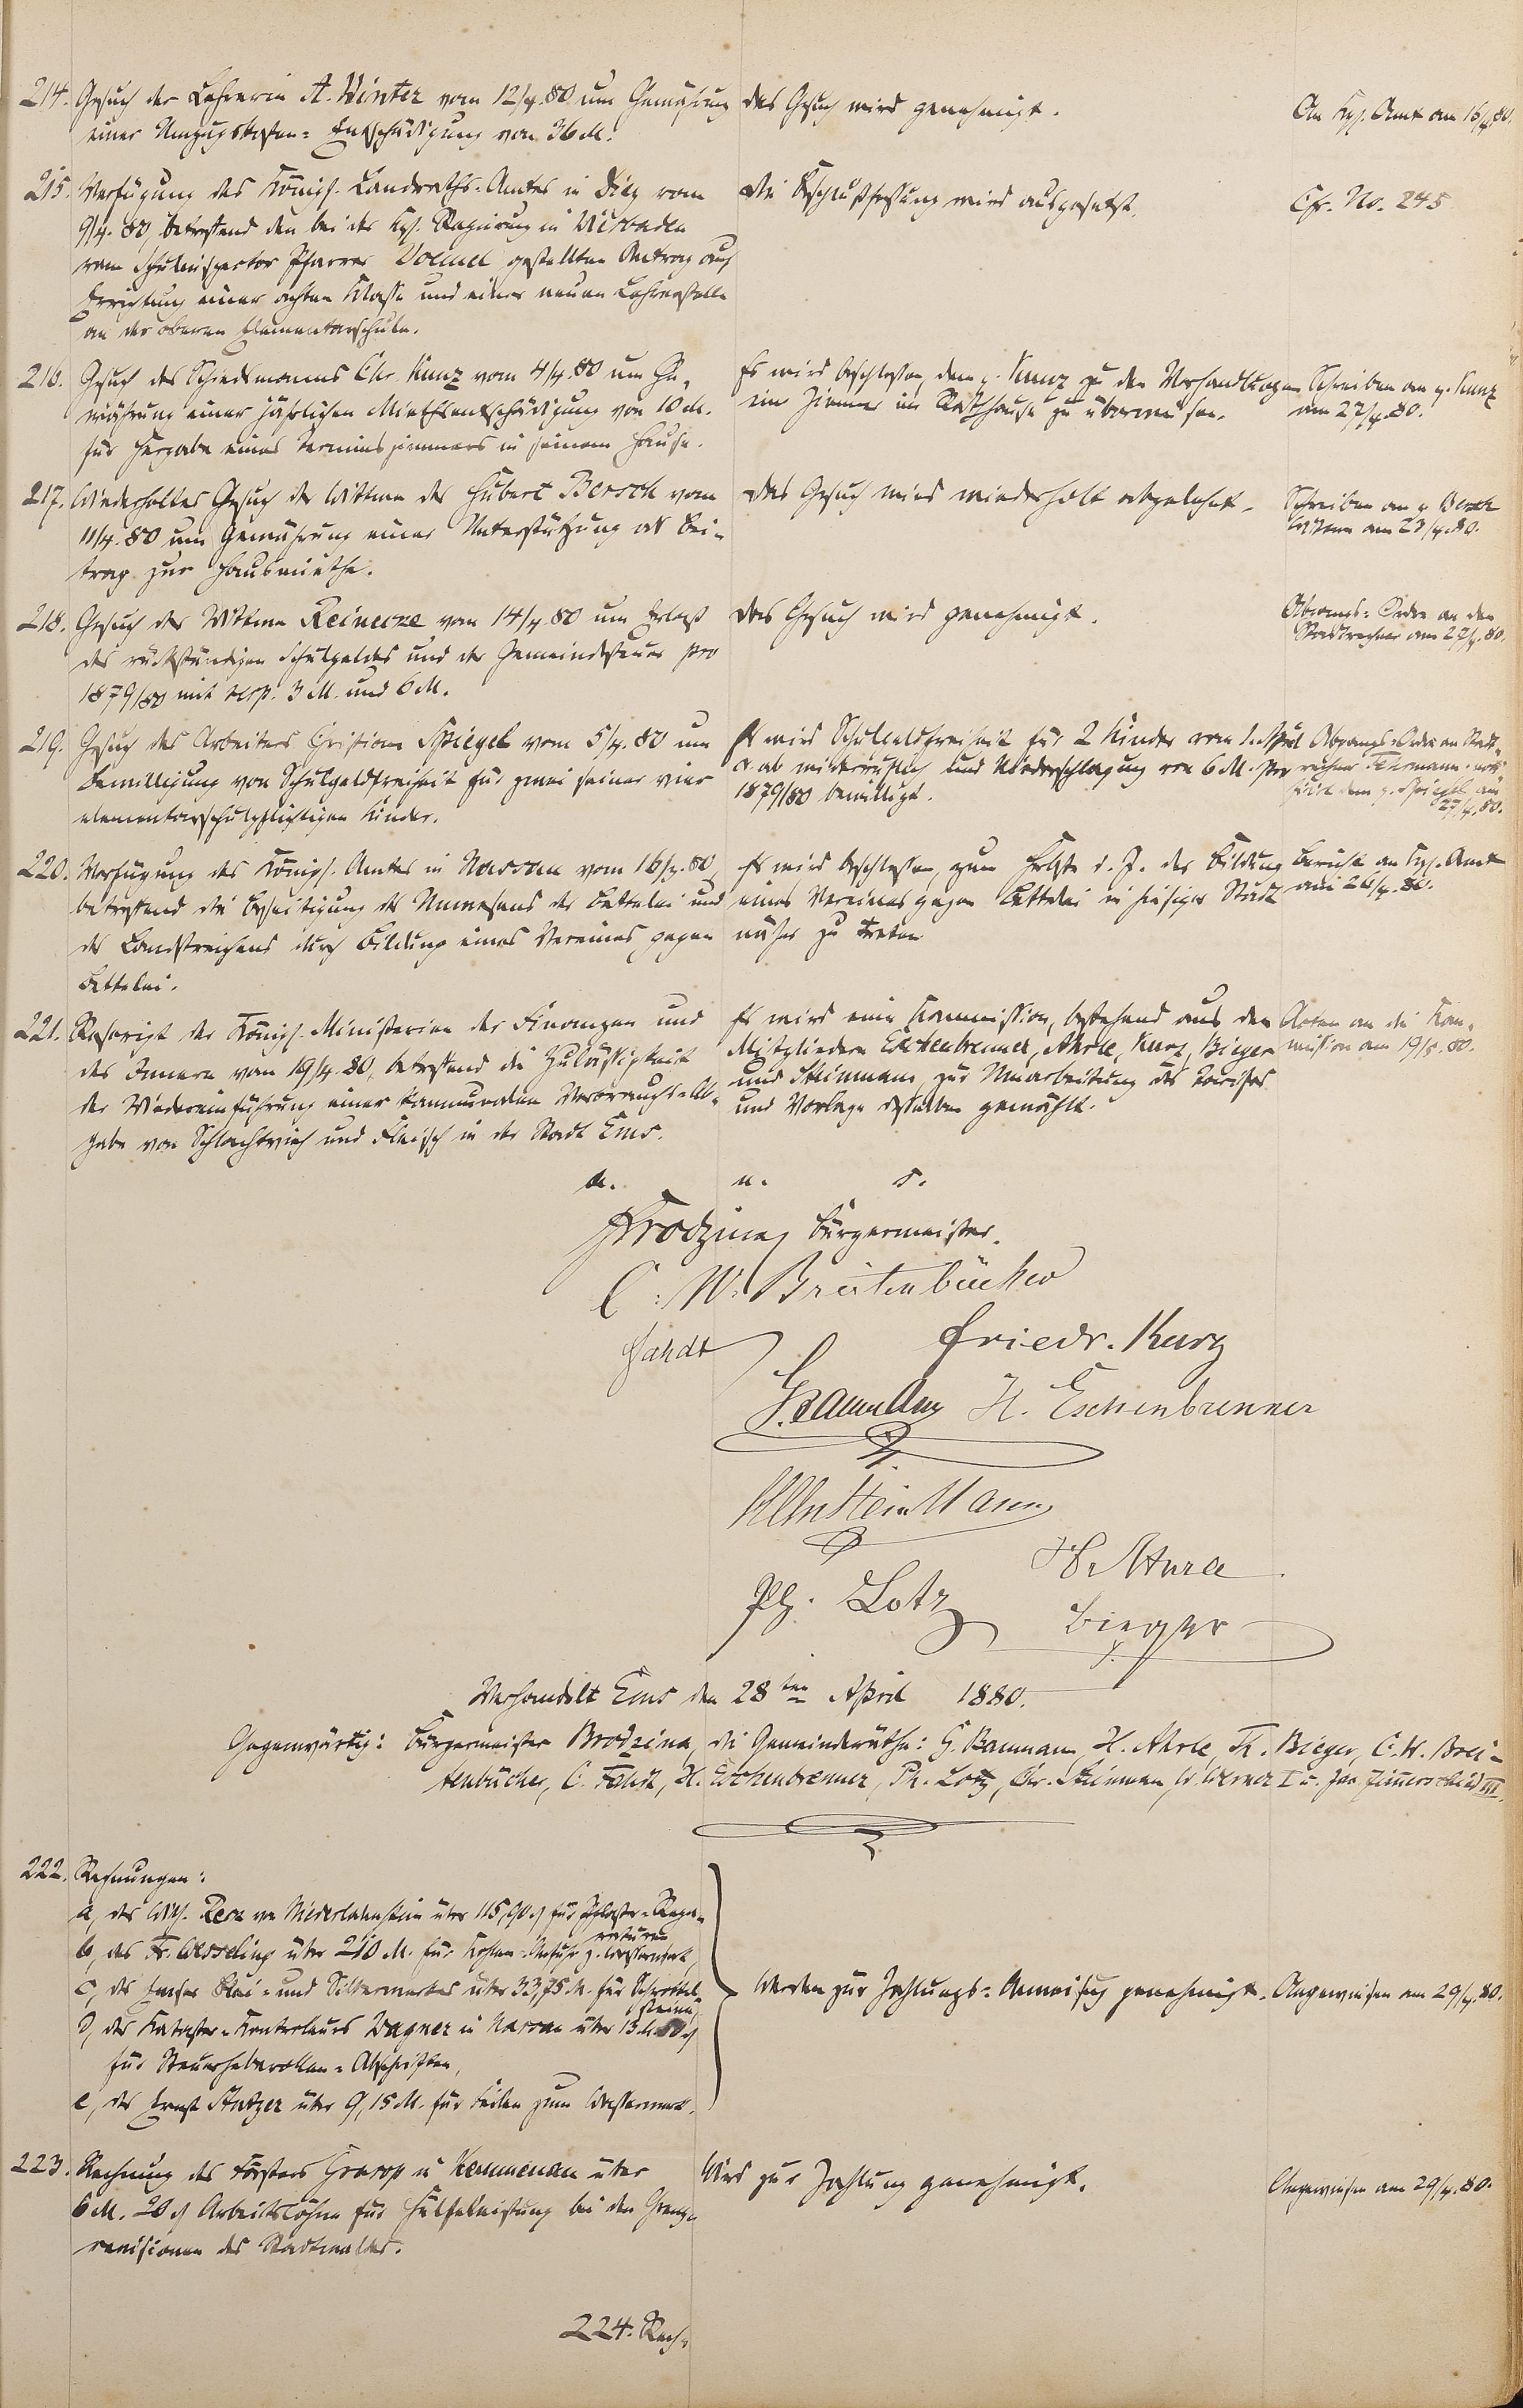 214. Gesuch der Lehrerin A. Winter vom 12/4. 80 um Gewährung
einer Umzugskosten-Entschädigung von 36 M.
Das Gesuch wird genehmigt.
An Kgl. Amt am 16/4. 80.
215. Verfügung des Königl. Landraths-Amtes in Diez vom
9/4. 80, betreffend den bei der Kgl. Regierung in Wiesbaden
vom Schulinspector Pfarrer Vömel gestellten Antrag auf
Errichtung einer achten Klasse und einer neuen Lehrerstelle
an der oberen Elementarschule.
Die Beschlußfassung wird ausgesetzt.
Cfr. No. 245
216. Gesuch des Schiedsmanns Chr. Kunz vom 4/4. 80 um Ge-
währung einer jährlichen Miethsentschädigung von 10 M.
für Hergabe eines Terminszimmers in seinem Hause.
Es wird beschlossen, dem p. Kunz zu den Verhandlungen
ein Zimmer im Rathhause zu überweisen.
Schreiben an p. Kunz
am 27/4. 80.
217. Wiederholtes Gesuch der Wittwe des Hubert Bersch vom
11/4. 80 um Gewährung einer Unterstützung als Bei-
trag zur Hausmiethe.
Das Gesuch wird wiederholt abgelehnt.
Schreiben an p. Bersch
Wittwe am 23/4. 80.
218. Gesuch der Wittwe Reinecke vom 14/4. 80 um Erlaß
des rückständigen Schulgeldes und der Gemeindesteuer pro
1879/80 mit resp. 3 M. und 6 M.
Das Gesuch wird genehmigt.
Abgangs-Ordre an den
Stadtrechner am 27/4. 80.
219. Gesuch des Arbeiters Christian Spiegel vom 5/4. 80 um
Bewilligung von Schulgeldfreiheit für zwei seiner vier
elementarschulpflichtigen Kinder.
Es wird Schulgeldfreiheit für 2 Kinder vom 1. April
c. ab widerruflich und Niederschlagung von 6 M. pro
1879/80 bewilligt.
Abgangs-Ordre an Stadt-
rechner Fehrmann
dem p. Spiegel am
27/4. 80.
220. Verfügung des Königl. Amtes in Nassau vom 16/4. 80,
betreffend die Beseitigung des Unwesens der Bettelei und
des Landstreichens durch Bildung eines Vereines gegen
Bettelei.
Es wird beschlossen, zum Herbste d. J. der Bildung
eines Vereines gegen Bettelei in hiesiger Stadt
näher zu treten
Bericht an Kgl. Amt
am 26/4. 80.
221. Rescript der Königl. Ministerien der Finanzen und
des Innern vom 19/4. 80, betreffend die Zulässigkeit
der Wiedereinführung einer kommunalen Verbrauchs-Ab-
gabe von Schlachtvieh und Fleisch in der Stadt Ems.
Es wird eine Kommission, bestehend aus den
Mitgliedern Eschenbrenner, Ahrle, Kurz, Bieger
und Steinmann zur Umarbeitung des Tarifes
und Vorlage desselben gewählt.
Acten an die Kom-
mission am 19/5. 80.
a. u. s.
Brodzina, Bürgermeister.
C. W. Breitenbücher
Fahdt
Friedr. Kurz
G. Baumann H. Eschenbrenner
Chr. Steinmann
H. Ahrle
Ph. Lotz
Bieger
Verhandelt Ems den 28ten April 1880.
Gegenwärtig: Bürgermeister Brodzina, die Gemeinderäthe: G. Baumann, H. Ahrle, Th. Bieger, C. W. Brei-
tenbücher, C. Fahdt, H. Eschenbrenner, Ph. Lotz, Chr. Steinmann, W. Werner I u. Jac. Zimmerschied III.
222. Rechnungen:
a, des Wilh. Rera von Niederlahnstein über 115,90 M für Pflaster-Repa-
raturen
b, des Fr. Wesseling über 210 M. für Kohlen-Abfuhr z. Wasserwerk,
c, des Emser Blei- und Silberwerkes über 33,75 M. für Schrottel-
steine,
d, des Kataster-Kontroleurs Wagner in Nassau über 13 M
für Steuerheberollen-Abschriften,
e, des Ernst Antzer über 9,15 M. für Feilen zum Wasserwerk.
Werden zur Zahlungs-Anweisung genehmigt.
Angewiesen am 29/4. 80.
223. Rechnung des Försters Grasop in Kemmenau über
6 M. 20 ₰ Arbeitslöhne für Hülfeleistung bei den Grenz-
revisionen des Stadtwaldes.
Wird zur Zahlung genehmigt.
Angewiesen am 29/4. 80.
224. Rech-